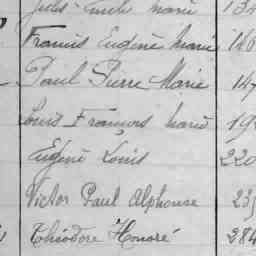 Jules Emile Marie 134
Francis Eugène Marie 146
Paul Pierre Marie 147
Louis François Marie 192
Eugène Louis 220
Victor Paul Alphonse 235
Théodore Honoré 284